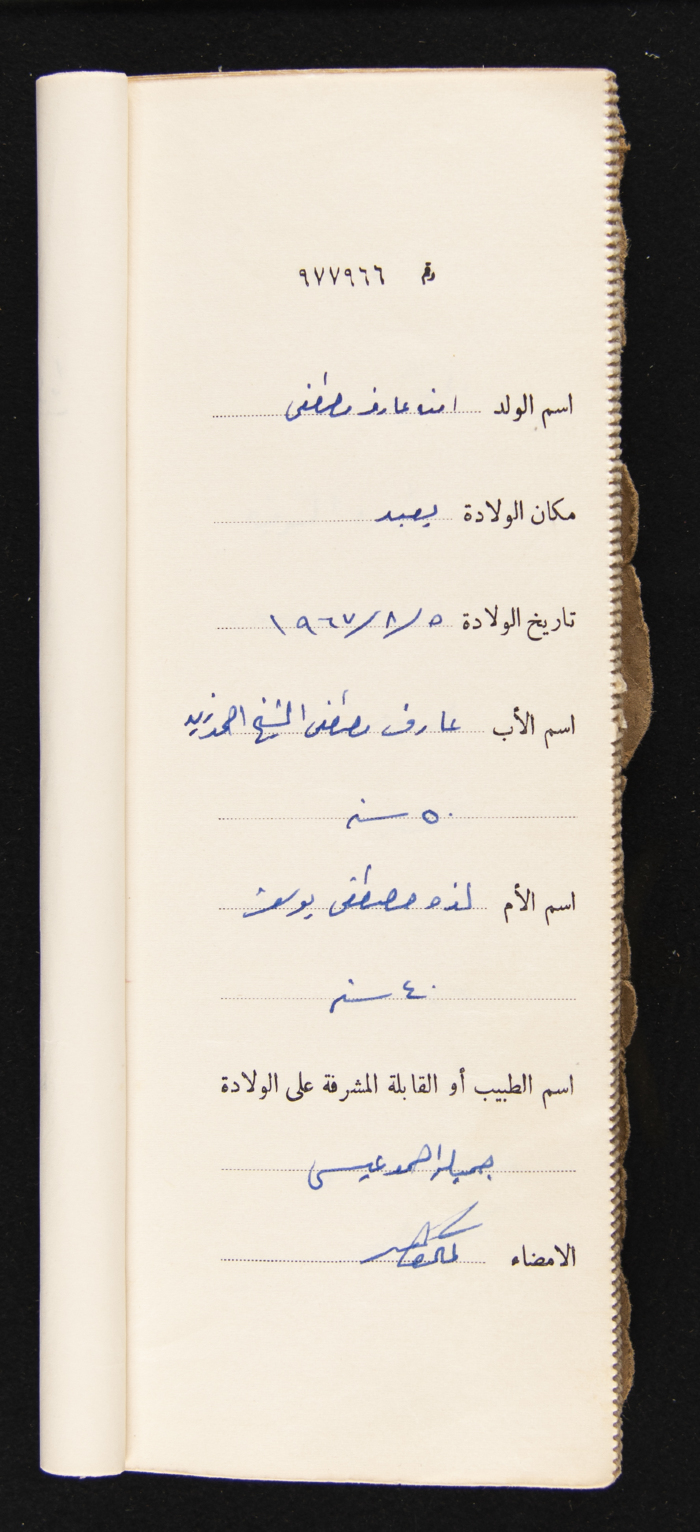 رقم ٩٧٧٩٦٦
اسم الولد امنه عارف مصطفى
مكان الولادة يعبد
تاريخ الولادة ١٩٦٧/٨/٥
اسم الأب عارف مصطفى الشيخ احمد زيد
٥٠ سنه
اسم الأم مصطفى يوسف
٤٠ سنه
اسم الطبيب أو القابلة المشرفة على الولادة
جميله احمد عيسى
الامضاء